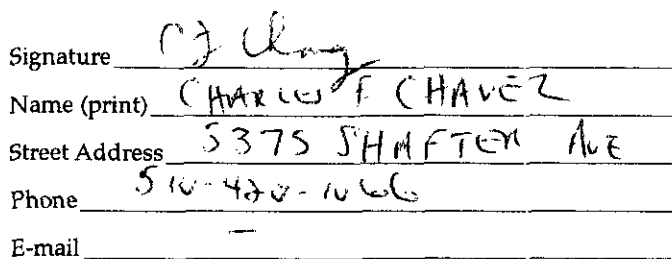 Signature
Name (print) CHARLES F CHAVEZ
Street Address 5375 SHAFTER AVE
Phone 510-420-1066
E-mail —